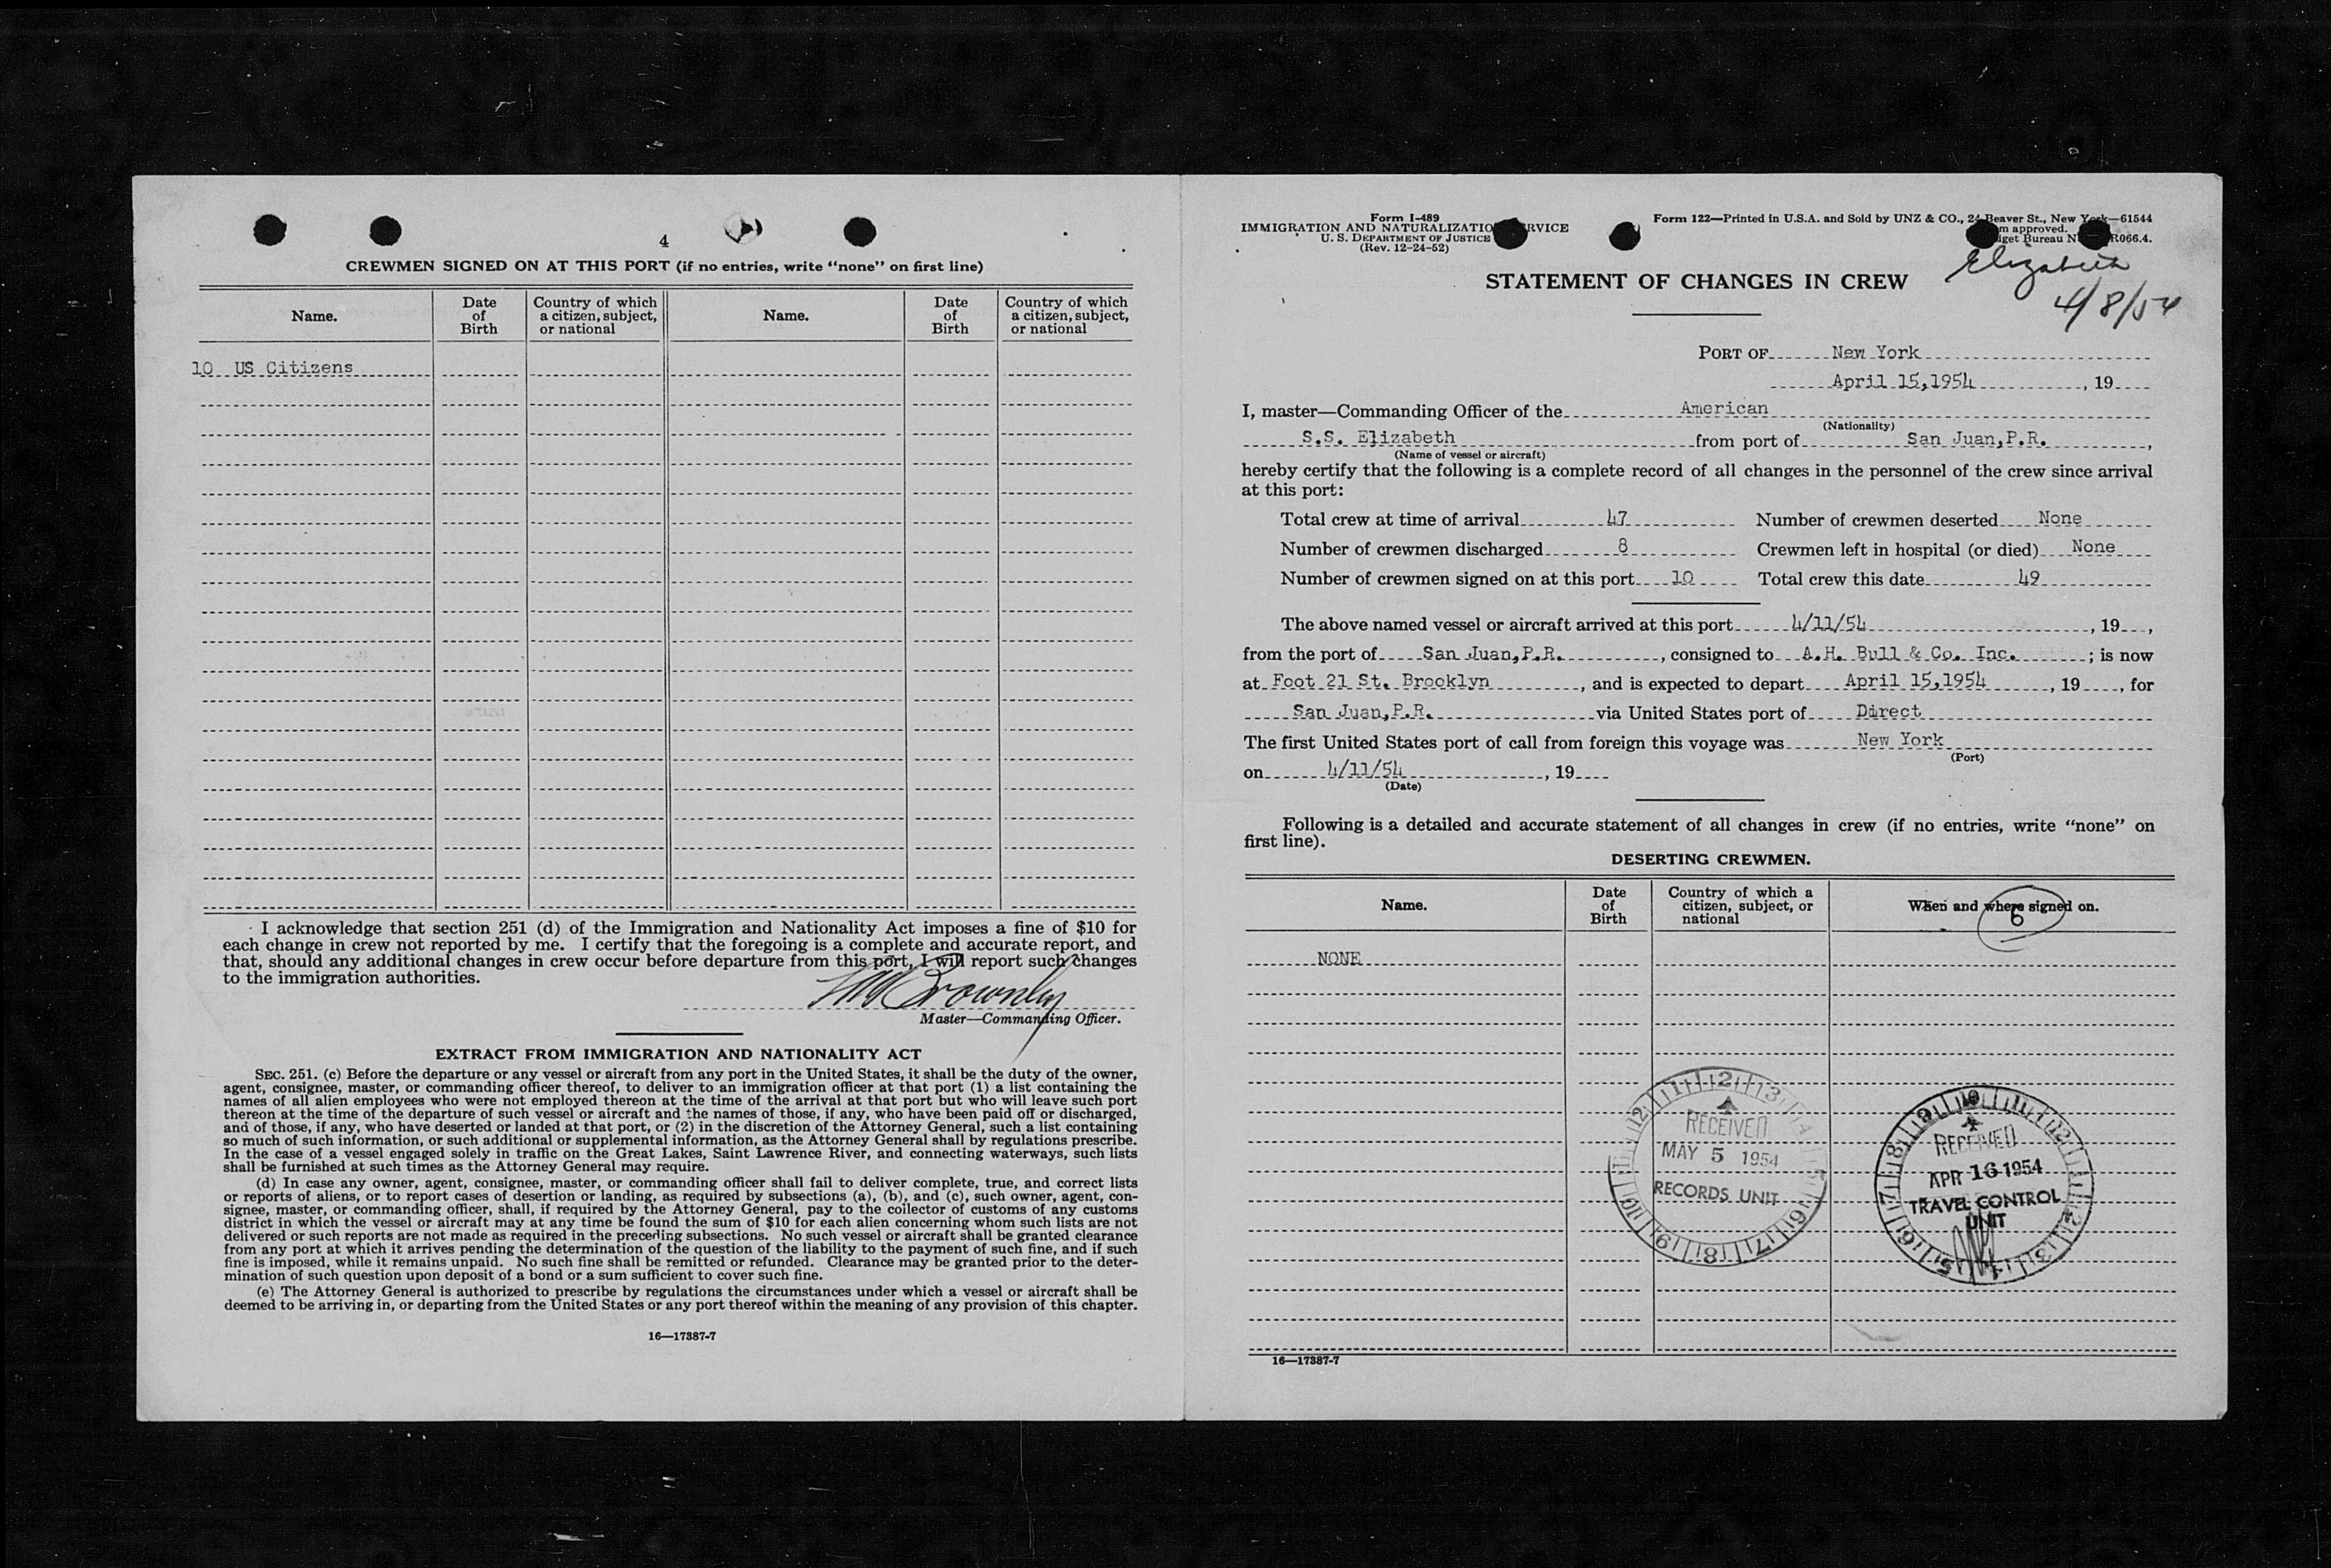 4
CREWMEN SIGNED ON AT THIS PORT (if no entries, write “none” on first line)
Name.
Date of Birth
Country of which a citizen, subject, or national
Name.
Date of Birth
Country of which a citizen, subject, or national
10 US Citizens
I acknowledge that section 251 (d) of the Immigration and Nationality Act imposes a fine of $10 for
each change in crew not reported by me. I certify that the foregoing is a complete and accurate report, and
that, should any additional changes in crew occur before departure from this port, I will report such changes
to the immigration authorities.
Master—Commanding Officer.
EXTRACT FROM IMMIGRATION AND NATIONALITY ACT
SEC. 251. (c) Before the departure or any vessel or aircraft from any port in the United States, it shall be the duty of the owner,
agent, consignee, master, or commanding officer thereof, to deliver to an immigration officer at that port (1) a list containing the
names of all alien employees who were not employed thereon at the time of the arrival at that port but who will leave such port
thereon at the time of the departure of such vessel or aircraft and the names of those, if any, who have been paid off or discharged,
and of those, if any, who have deserted or landed at that port, or (2) in the discretion of the Attorney General, such a list containing
so much of such information, or such additional or supplemental information, as the Attorney General shall by regulations prescribe.
In the case of a vessel engaged solely in traffic on the Great Lakes, Saint Lawrence River, and connecting waterways, such lists
shall be furnished at such times as the Attorney General may require.
(d) In case any owner, agent, consignee, master, or commanding officer shall fail to deliver complete, true, and correct lists
or reports of aliens, or to report cases of desertion or landing, as required by subsections (a), (b), and (c), such owner, agent, con-
signee, master, or commanding officer, shall, if required by the Attorney General, pay to the collector of customs of any customs
district in which the vessel or aircraft may at any time be found the sum of $10 for each alien concerning whom such lists are not
delivered or such reports are not made as required in the preceding subsections. No such vessel or aircraft shall be granted clearance
from any port at which it arrives pending the determination of the question of the liability to the payment of such fine, and if such
fine is imposed, while it remains unpaid. No such fine shall be remitted or refunded. Clearance may be granted prior to the deter-
mination of such question upon deposit of a bond or a sum sufficient to cover such fine.
(e) The Attorney General is authorized to prescribe by regulations the circumstances under which a vessel or aircraft shall be
deemed to be arriving in, or departing from the United States or any port thereof within the meaning of any provision of this chapter.
16—17387-7
Form I-489
IMMIGRATION AND NATURALIZATIO RVICE
U. S. DEPARTMENT OF JUSTICE
(Rev. 12-24-52)
Form 122—Printed in U.S.A. and Sold by UNZ & CO., 24 Beaver St., New York—61544
m approved.
get Bureau N R066.4.
Elizabeth
4/8/54
STATEMENT OF CHANGES IN CREW
PORT OF New York
April 15,1954, 19
I, master—Commanding Officer of the American
(Nationality)
S.S. Elizabeth from port of San Juan,P.R.,
(Name of vessel or aircraft)
hereby certify that the following is a complete record of all changes in the personnel of the crew since arrival
at this port:
Total crew at time of arrival 47 Number of crewmen deserted None
Number of crewmen discharged 8 Crewmen left in hospital (or died) None
Number of crewmen signed on at this port 10 Total crew this date 49
The above named vessel or aircraft arrived at this port 4/11/54, 19,
from the port of San Juan,P.R., consigned to A.H. Bull & Co. Inc.; is now
at Foot 21 St. Brooklyn, and is expected to depart April 15,1954, 19, for
San Juan,P.R. via United States port of Direct
The first United States port of call from foreign this voyage was New York
(Port)
on 4/11/54, 19
(Date)
Following is a detailed and accurate statement of all changes in crew (if no entries, write “none” on
first line).
DESERTING CREWMEN.
Name.
Date of Birth
Country of which a citizen, subject, or national
When and where signed on.
6
NONE
RECEIVED
MAY 5 1954
RECORDS UNIT
RECEIVED
APR 16 1954
TRAVEL CONTROL
UNIT
16—17387-7